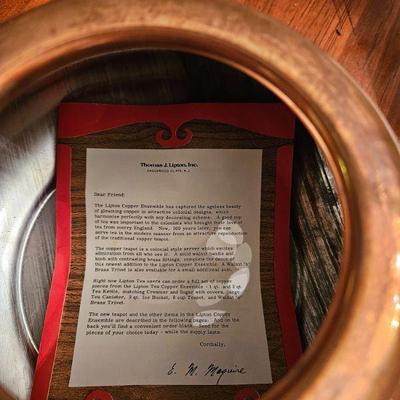 Thomas J. Lipton, Inc.
ENGLEWOOD CLIFFS, N.J.
Dear Friend:
The Lipton Copper Ensemble has captured the ageless beauty
of gleaming copper in attractive colonial designs, which
harmonize perfectly with any decorating scheme. A good cup
of tea was important to the colonists who brought their love of
tea from merry England. Now, 300 years later, you can
serve tea in the modern manner from an attractive reproduction
of the traditional copper teapot.
The copper teapot is a colonial style server which excites
admiration from all who see it. A solid walnut handle and
knob with contrasting brass fittings, complete the design of
this newest addition to the Lipton Copper Ensemble. A Walnut 'n'
Brass Trivet is also available for a small additional sum.
Right now Lipton Tea users can order a full set of copper
pieces from the Lipton Tea Copper Ensemble - 1 qt. and 2 qt.
Tea Kettle, matching Creamer and Sugar with covers, large
Tea Canister, 3 qt. Ice Bucket, 6 cup Teapot, and Walnut 'n'
Brass Trivet.
The new teapot and the other items in the Lipton Copper
Ensemble are described in the following pages. And on the
back you'll find a convenient order blank. Send for the
pieces of your choice today - while the supply lasts.
Cordially,
E. M. Maguire